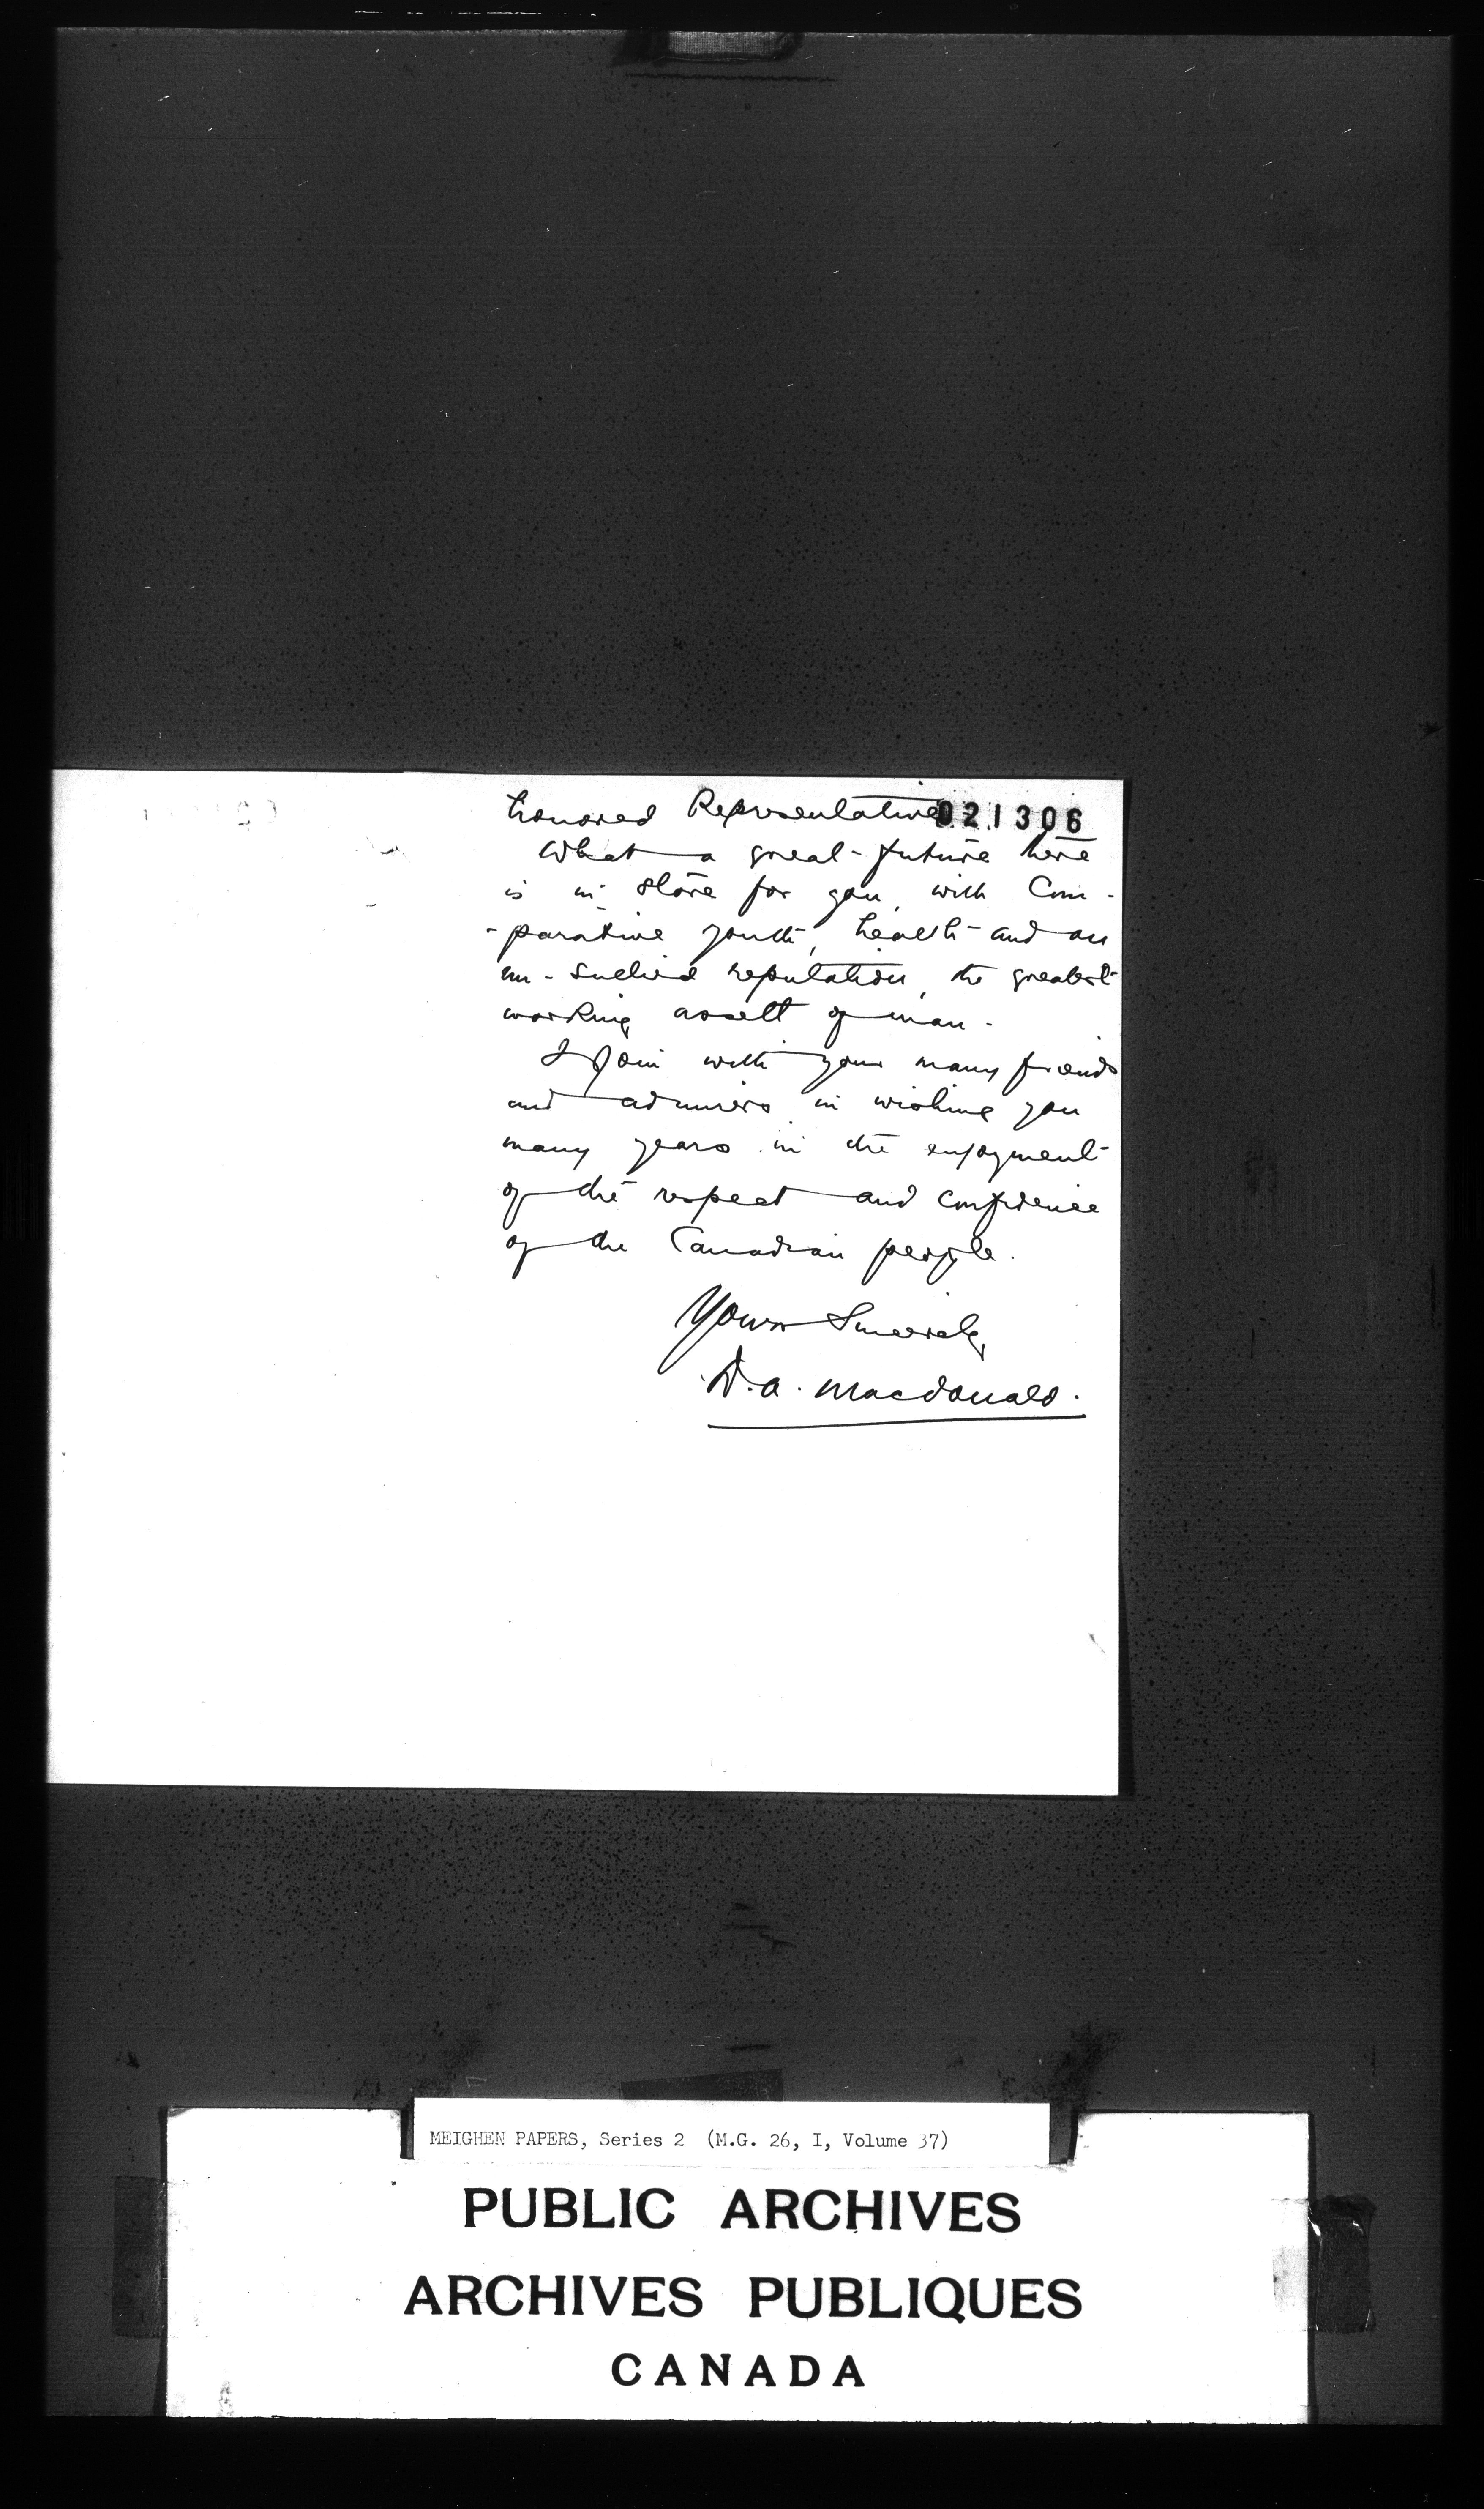 honored Representative.
021306
What a great future here
is in store for you, with Com-
-parative youth, health and an
un-sullied reputation, the greatest
working assett of man.
I Join with your many friends
and admirers in wishing you
many years in the enjoyment
of the respect and confidence
of the Canadian people.
Yours Sincerely,
D. A. Macdonald.
MEIGHEN PAPERS, Series 2 (M.G. 26, I, Volume 37)
PUBLIC ARCHIVES
ARCHIVES PUBLIQUES
CANADA